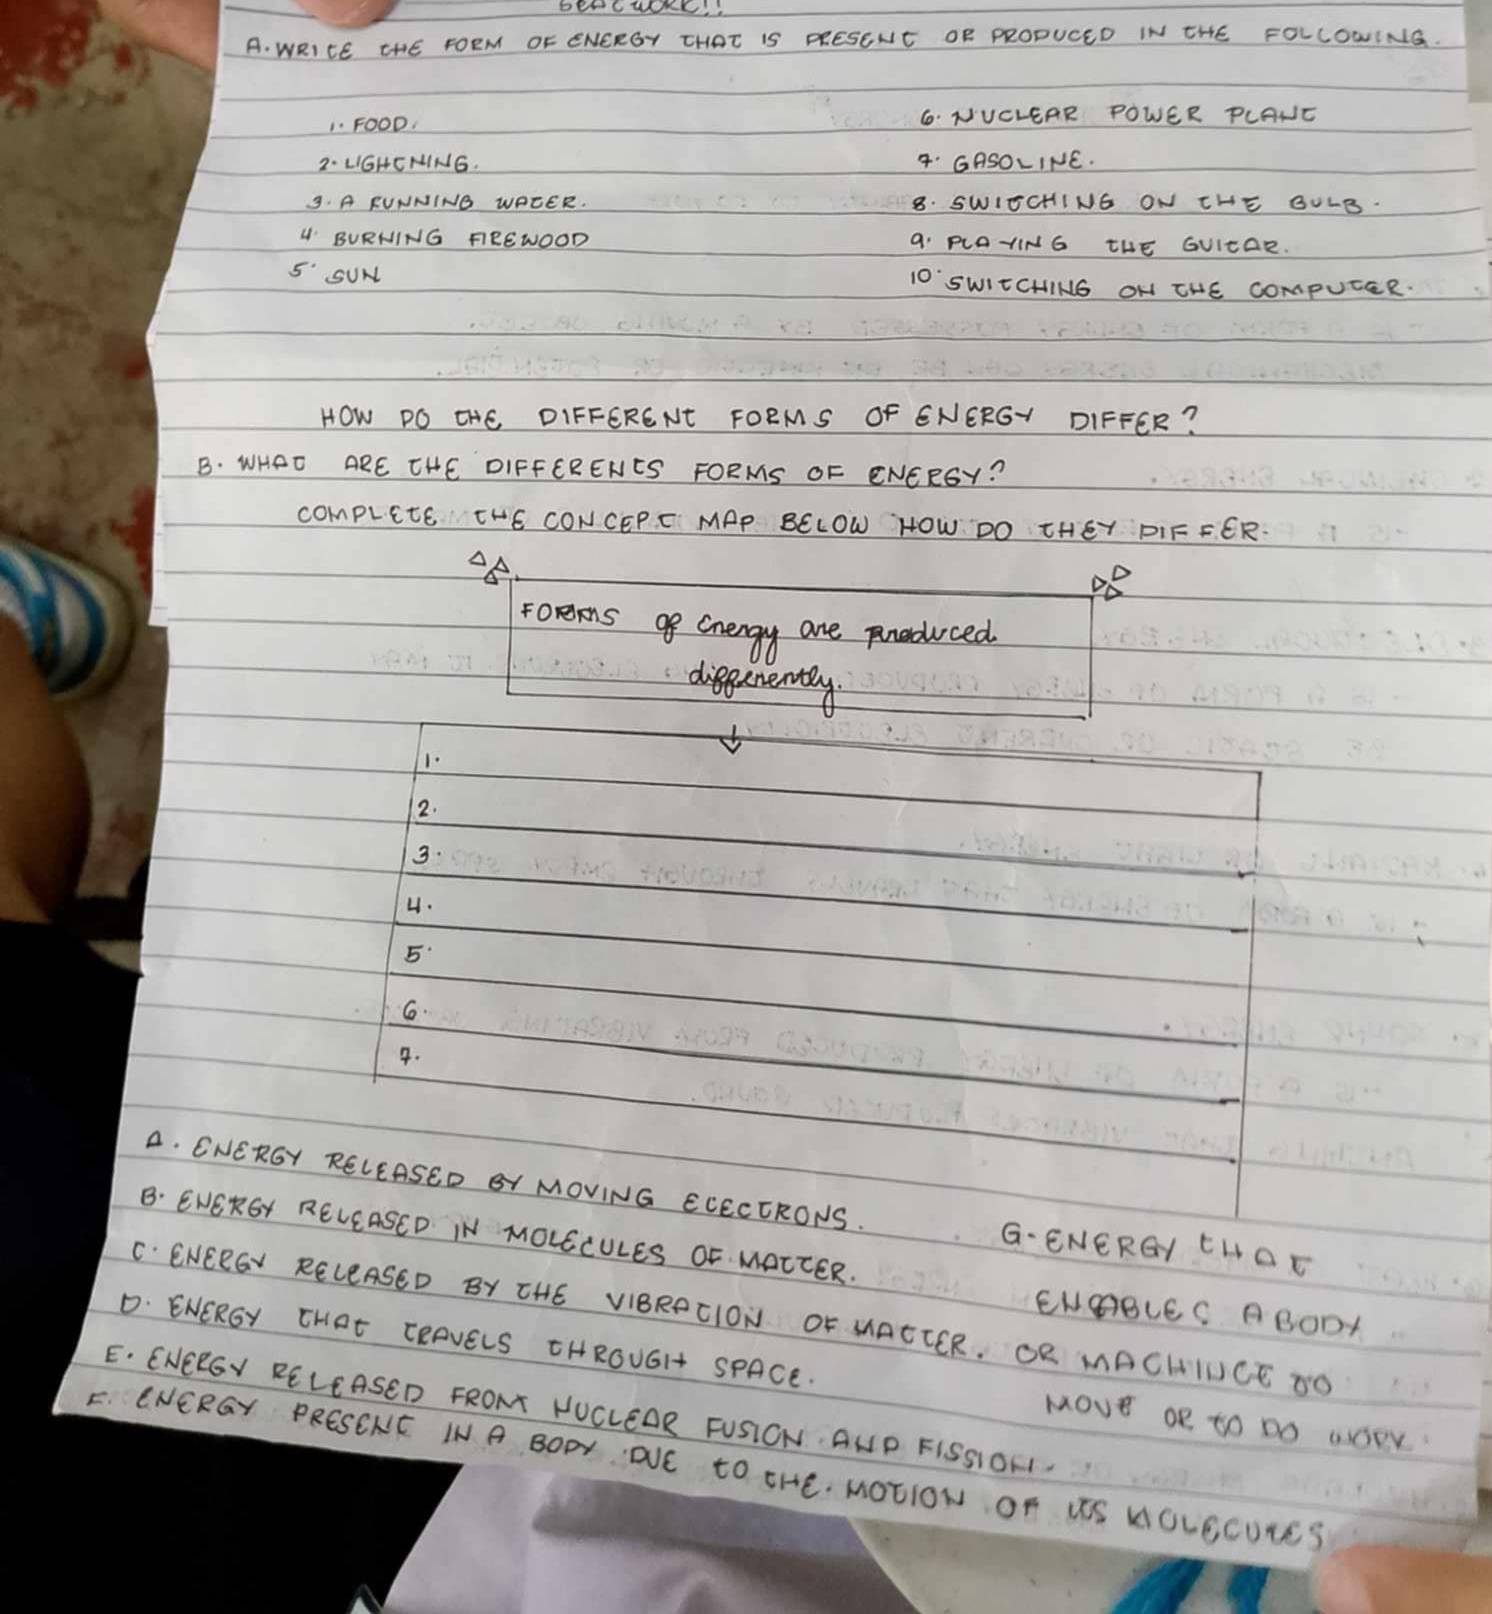 SEATWORK!!
A. WRITE THE FORM OF ENERGY THAT IS PRESENT OR PRODUCED IN THE FOLLOWING.
1. FOOD.
2. LIGHTNING.
3. A RUNNING WATER.
4. BURNING FIREWOOD
5. SUN
6. NUCLEAR POWER PLANT
7. GASOLINE.
8. SWITCHING ON THE BULB.
9. PLAYING THE GUITAR.
10. SWITCHING ON THE COMPUTER.
HOW DO THE DIFFERENT FORMS OF ENERGY DIFFER?
B. WHAT ARE THE DIFFERENTS FORMS OF ENERGY?
COMPLETE THE CONCEPT MAP BELOW HOW DO THEY DIFFER.
FORMS of Energy are produced
differently.
1.
2.
3.
4.
5.
6.
7.
A. ENERGY RELEASED BY MOVING ELECTRONS.
B. ENERGY RELEASED IN MOLECULES OF MATTER.
C. ENERGY RELEASED BY THE VIBRATION OF MATTER.
D. ENERGY THAT TRAVELS THROUGH SPACE.
E. ENERGY RELEASED FROM NUCLEAR FUSION AND FISSION.
F. ENERGY PRESENT IN A BODY DUE TO THE MOTION OF ITS MOLECULES
G. ENERGY THAT
ENABLES A BODY
OR MACHINCE TO
MOVE OR TO DO WORK.